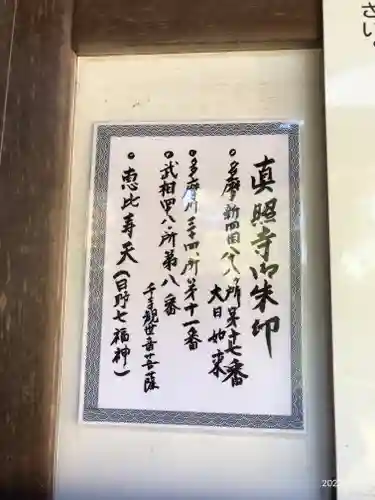 真照寺御朱印
・多摩新四国八八ヶ所第十七番
大日如来
・多摩川三十四ヶ所第十一番
・武相四八ヶ所第八番
千手観世音菩薩
・恵比寿天（日野七福神）
さい。